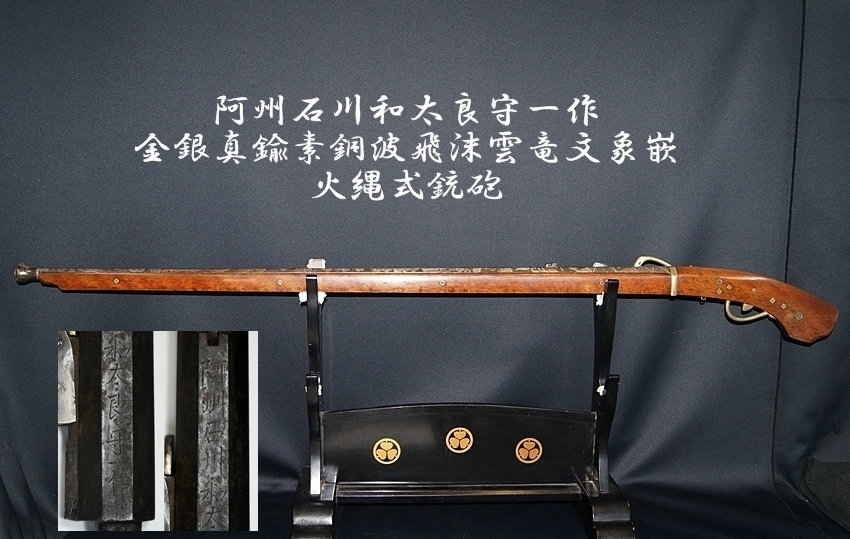 阿州石川和太良守一作
金銀真鍮素銅波飛沫雲竜文象嵌
火縄式銃砲
和太良守一作
阿州石川和太